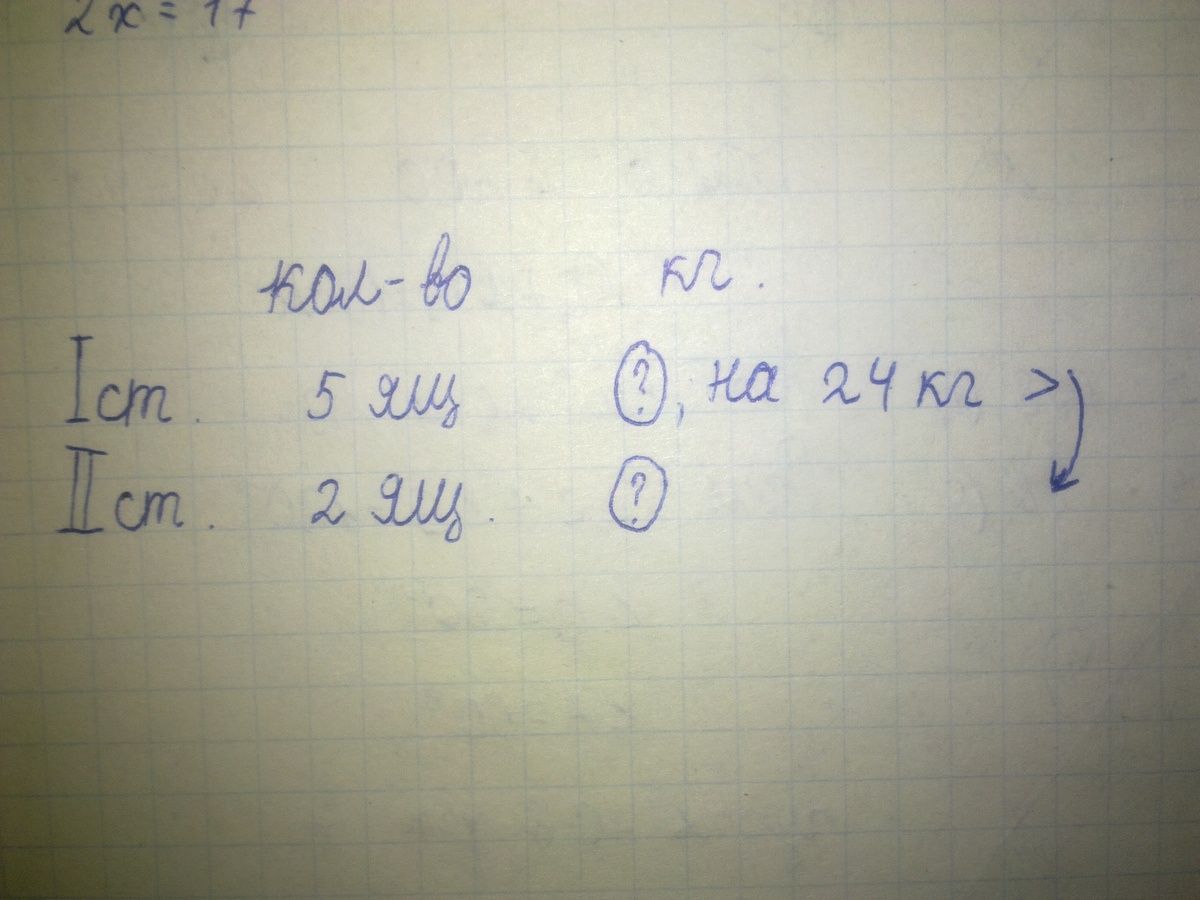 2x = 17
кол-во кг.
I ст. 5 ящ ?, на 24 кг >
II ст. 2 ящ. ?